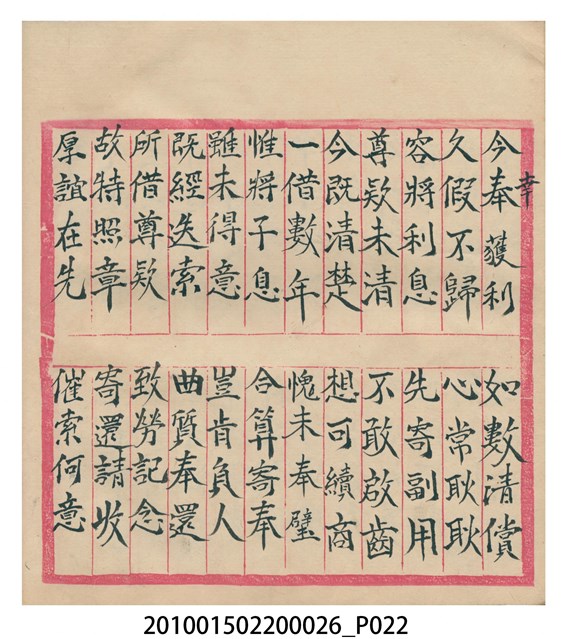 幸
今奉獲利 如數清償
久假不歸 心常耿耿
容將利息 先寄副用
尊欵未清 不敢啟齒
今既清楚 想可續商
一借數年 愧未奉璧
惟將子息 合算寄奉
雖未得意 豈肯負人
既經迭索 曲質奉還
所借尊欵 致勞記念
故特照章 寄還請收
厚誼在先 催索何意
201001502200026_P022